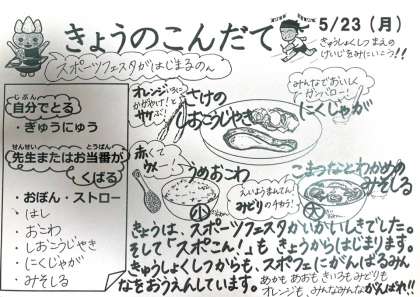 きょうのこんだて
5/23(月)
きゅうしょくしつまえの
けいじをみにいこう!!
スポーツフェスタがはじまるのん
自分でとる
じぶん
・ぎゅうにゅう
せんせい とうばん
先生またはお当番が
くばる
・おぼん・ストロー
・はし
・おこわ
・しおこうじやき
・にくじゃが
・みそしる
オレンジいろに
かがやけ!と
サケぶ!
さけの
しおこうじやき
みんなでおいしく
ガンバロー!
にくじゃが
赤くて
ウメー!
うめおこわ
小
えいようまんてん!
みどりのチカラ!
こまつなとわかめの
みそしる
大
きょうは、スポーツフェスタかいかいしきでした。
そして「スポこん!」も きょうからはじまります。
きゅうしょくしつからも、スポフェにがんばるみん
なをおうえんしています。
あかも あおも きいろも みどりも
オレンジも、みんなみんながんばれ!!